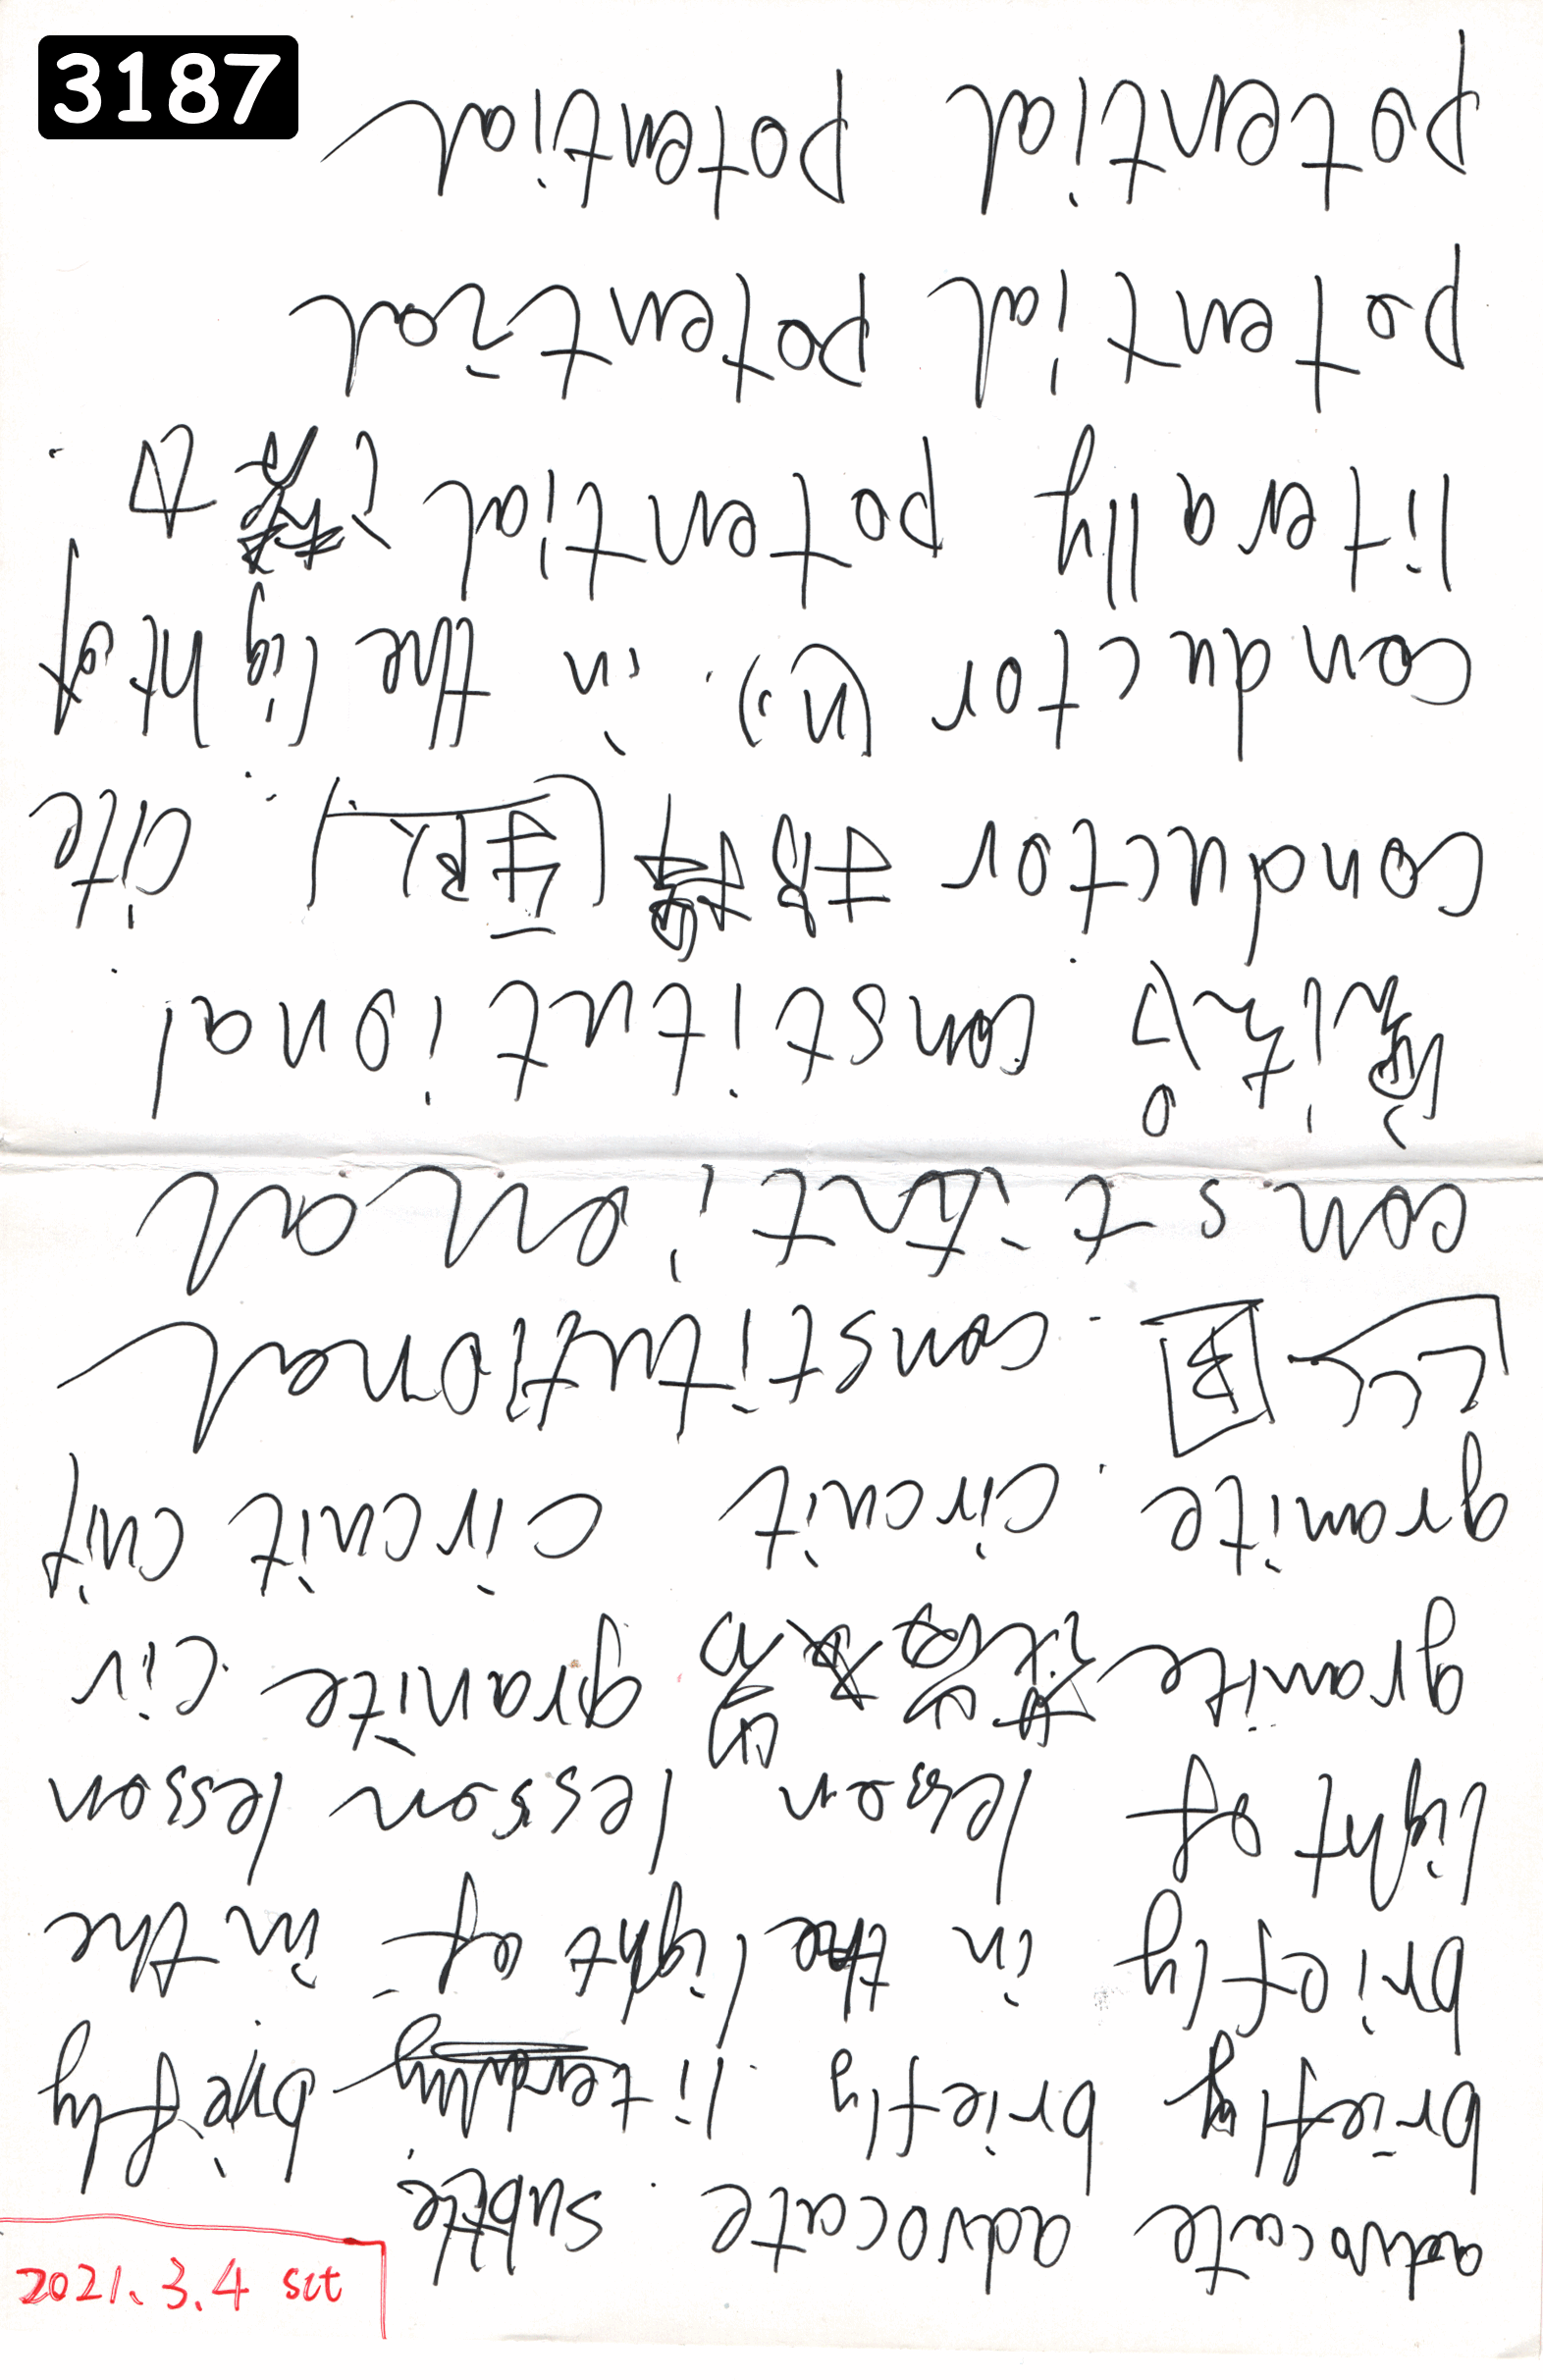 3187
advocate advocate . subtle
briefly briefly . literally briefly
briefly in the light of . in the
light of lesson lesson lesson
granite granite . cir
granite . circuit circuit cuit
constitutional
constitutional
constitutional .
conductor 指挥 . cite
conductor (n.) . in the light of
literally potential
potential potential
potential potential
2021.3.4 sct